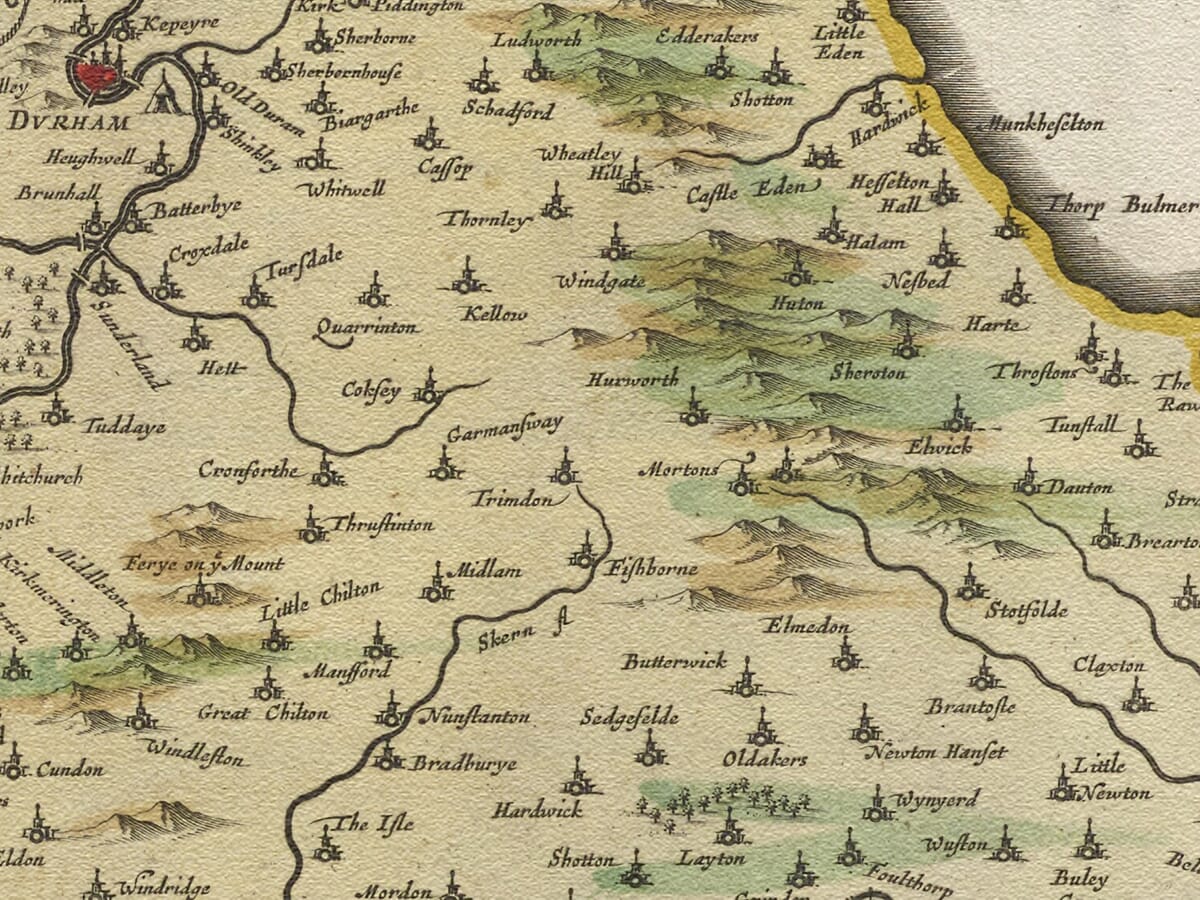 Kepeyre
Kirk
Piddington
Sherborne
Ludworth
Edderakers
Little
Eden
Sherbornhouse
Schadford
Shotton
DVRHAM
Old Duram
Biargarthe
Hardwick
Munkheselton
Shinkley
Heughwell
Cassop
Wheatley
Hill
Whitwell
Castle Eden
Hesselton
Hall
Brunhall
Batterbye
Thornley
Thorp Bulmer
Croxdale
Tursdale
Halam
Windgate
Nesbed
Huton
Kellow
Quarrinton
Harte
Sunderland
Hett
Coksey
Hurworth
Sheroton
Throstons
The
Raw
Tuddaye
Garmansway
Tunstall
Elwick
hitchurch
Cronforthe
Mortons
Trimdon
Dauton
Str
Thruslinton
Brearto
Ferye on yͤ Mount
Middleton
Kirkmerington
Midlam
Fishborne
Little Chilton
Stotfolde
Skern fl
Elmedon
Manfford
Butterwick
Claxton
Great Chilton
Nunstanton
Sedgefelde
Brantoste
Windleston
Oldakers
Newton Hanset
Cundon
Bradburye
Little
Newton
Hardwick
Wynyerd
The Isle
Eldon
Shotton
Layton
Wuston
Buley
Bel
Windridge
Mordon
Foulthorp